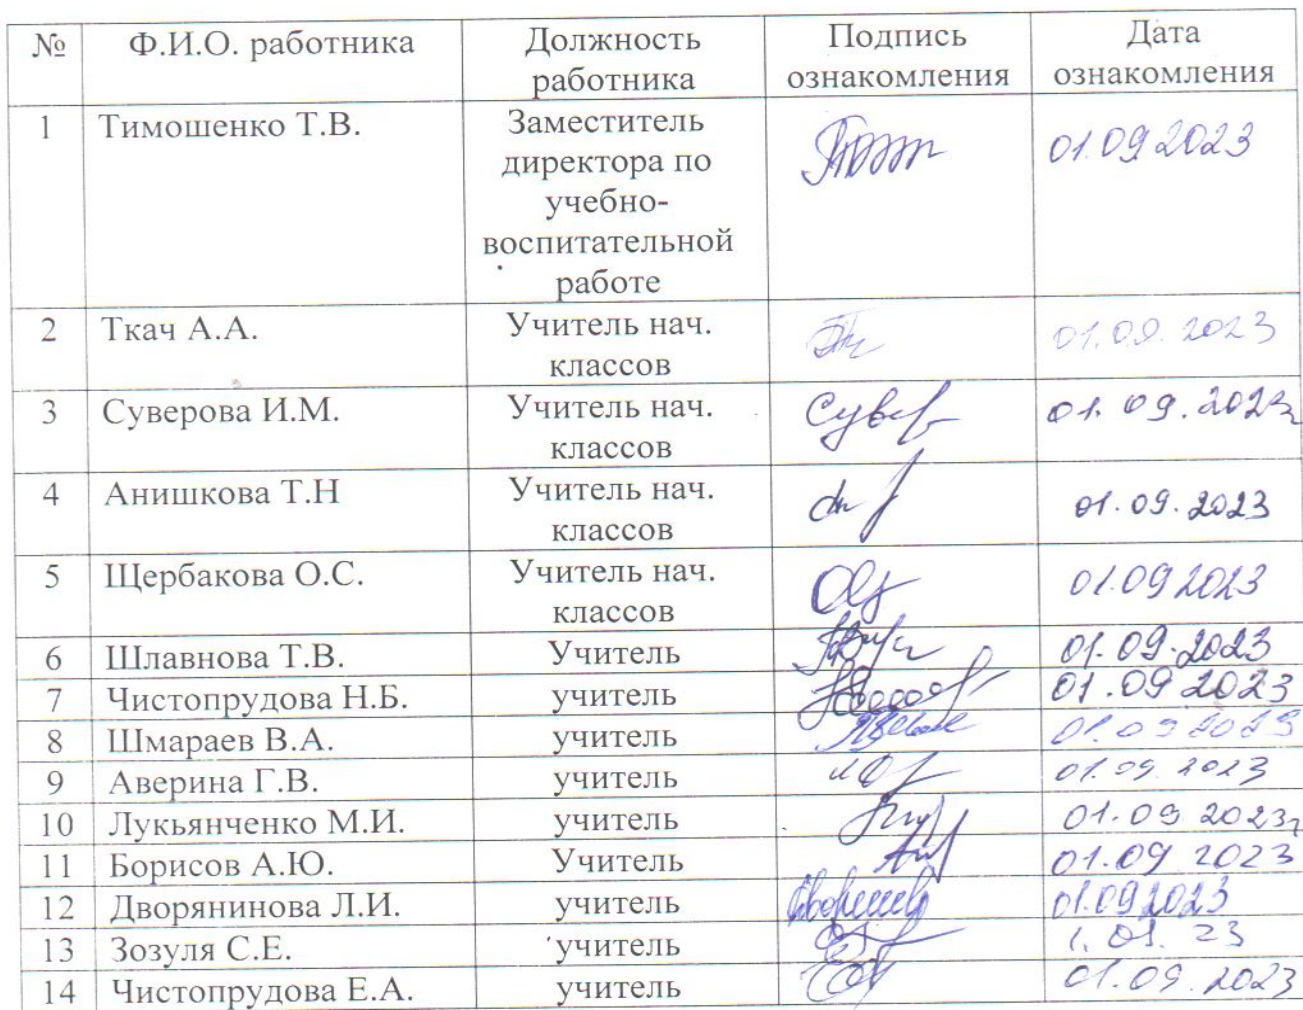 № Ф.И.О. работника Должность работника Подпись ознакомления Дата ознакомления
1 Тимошенко Т.В. Заместитель директора по учебно-воспитательной работе 01.09 2023
2 Ткач А.А. Учитель нач. классов 01.09. 2023
3 Суверова И.М. Учитель нач. классов 01.09.2023
4 Анишкова Т.Н Учитель нач. классов 01.09.2023
5 Щербакова О.С. Учитель нач. классов 01.09 2023
6 Шлавнова Т.В. Учитель 01.09.2023
7 Чистопрудова Н.Б. учитель 01.09 2023
8 Шмараев В.А. учитель 01.09 2023
9 Аверина Г.В. учитель 01.09.2023
10 Лукьянченко М.И. учитель 01.09 2023г
11 Борисов А.Ю. Учитель 01.09 2023
12 Дворянинова Л.И. учитель 01.09 2023
13 Зозуля С.Е. учитель
14 Чистопрудова Е.А. учитель 01.09.2023